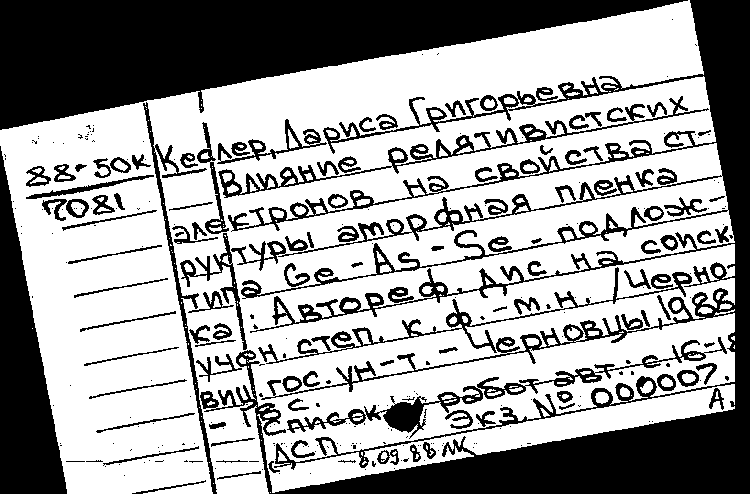 88-50к Кеслер, Лариса Григорьевна.
7081
Влияние релятивистских
электронов на свойства ст-
руктуры аморфная пленка
типа Ge-As-Se - подлож-
ка : Автореф. дис. на соиск.
учен. степ. к.ф.-м.н. / Черно-
виц. гос. ун-т. - Черновцы, 1988
- с.
Список работ авт.: с. 16-18
ДСП. Экз. № 000007.
8.09.88 А.